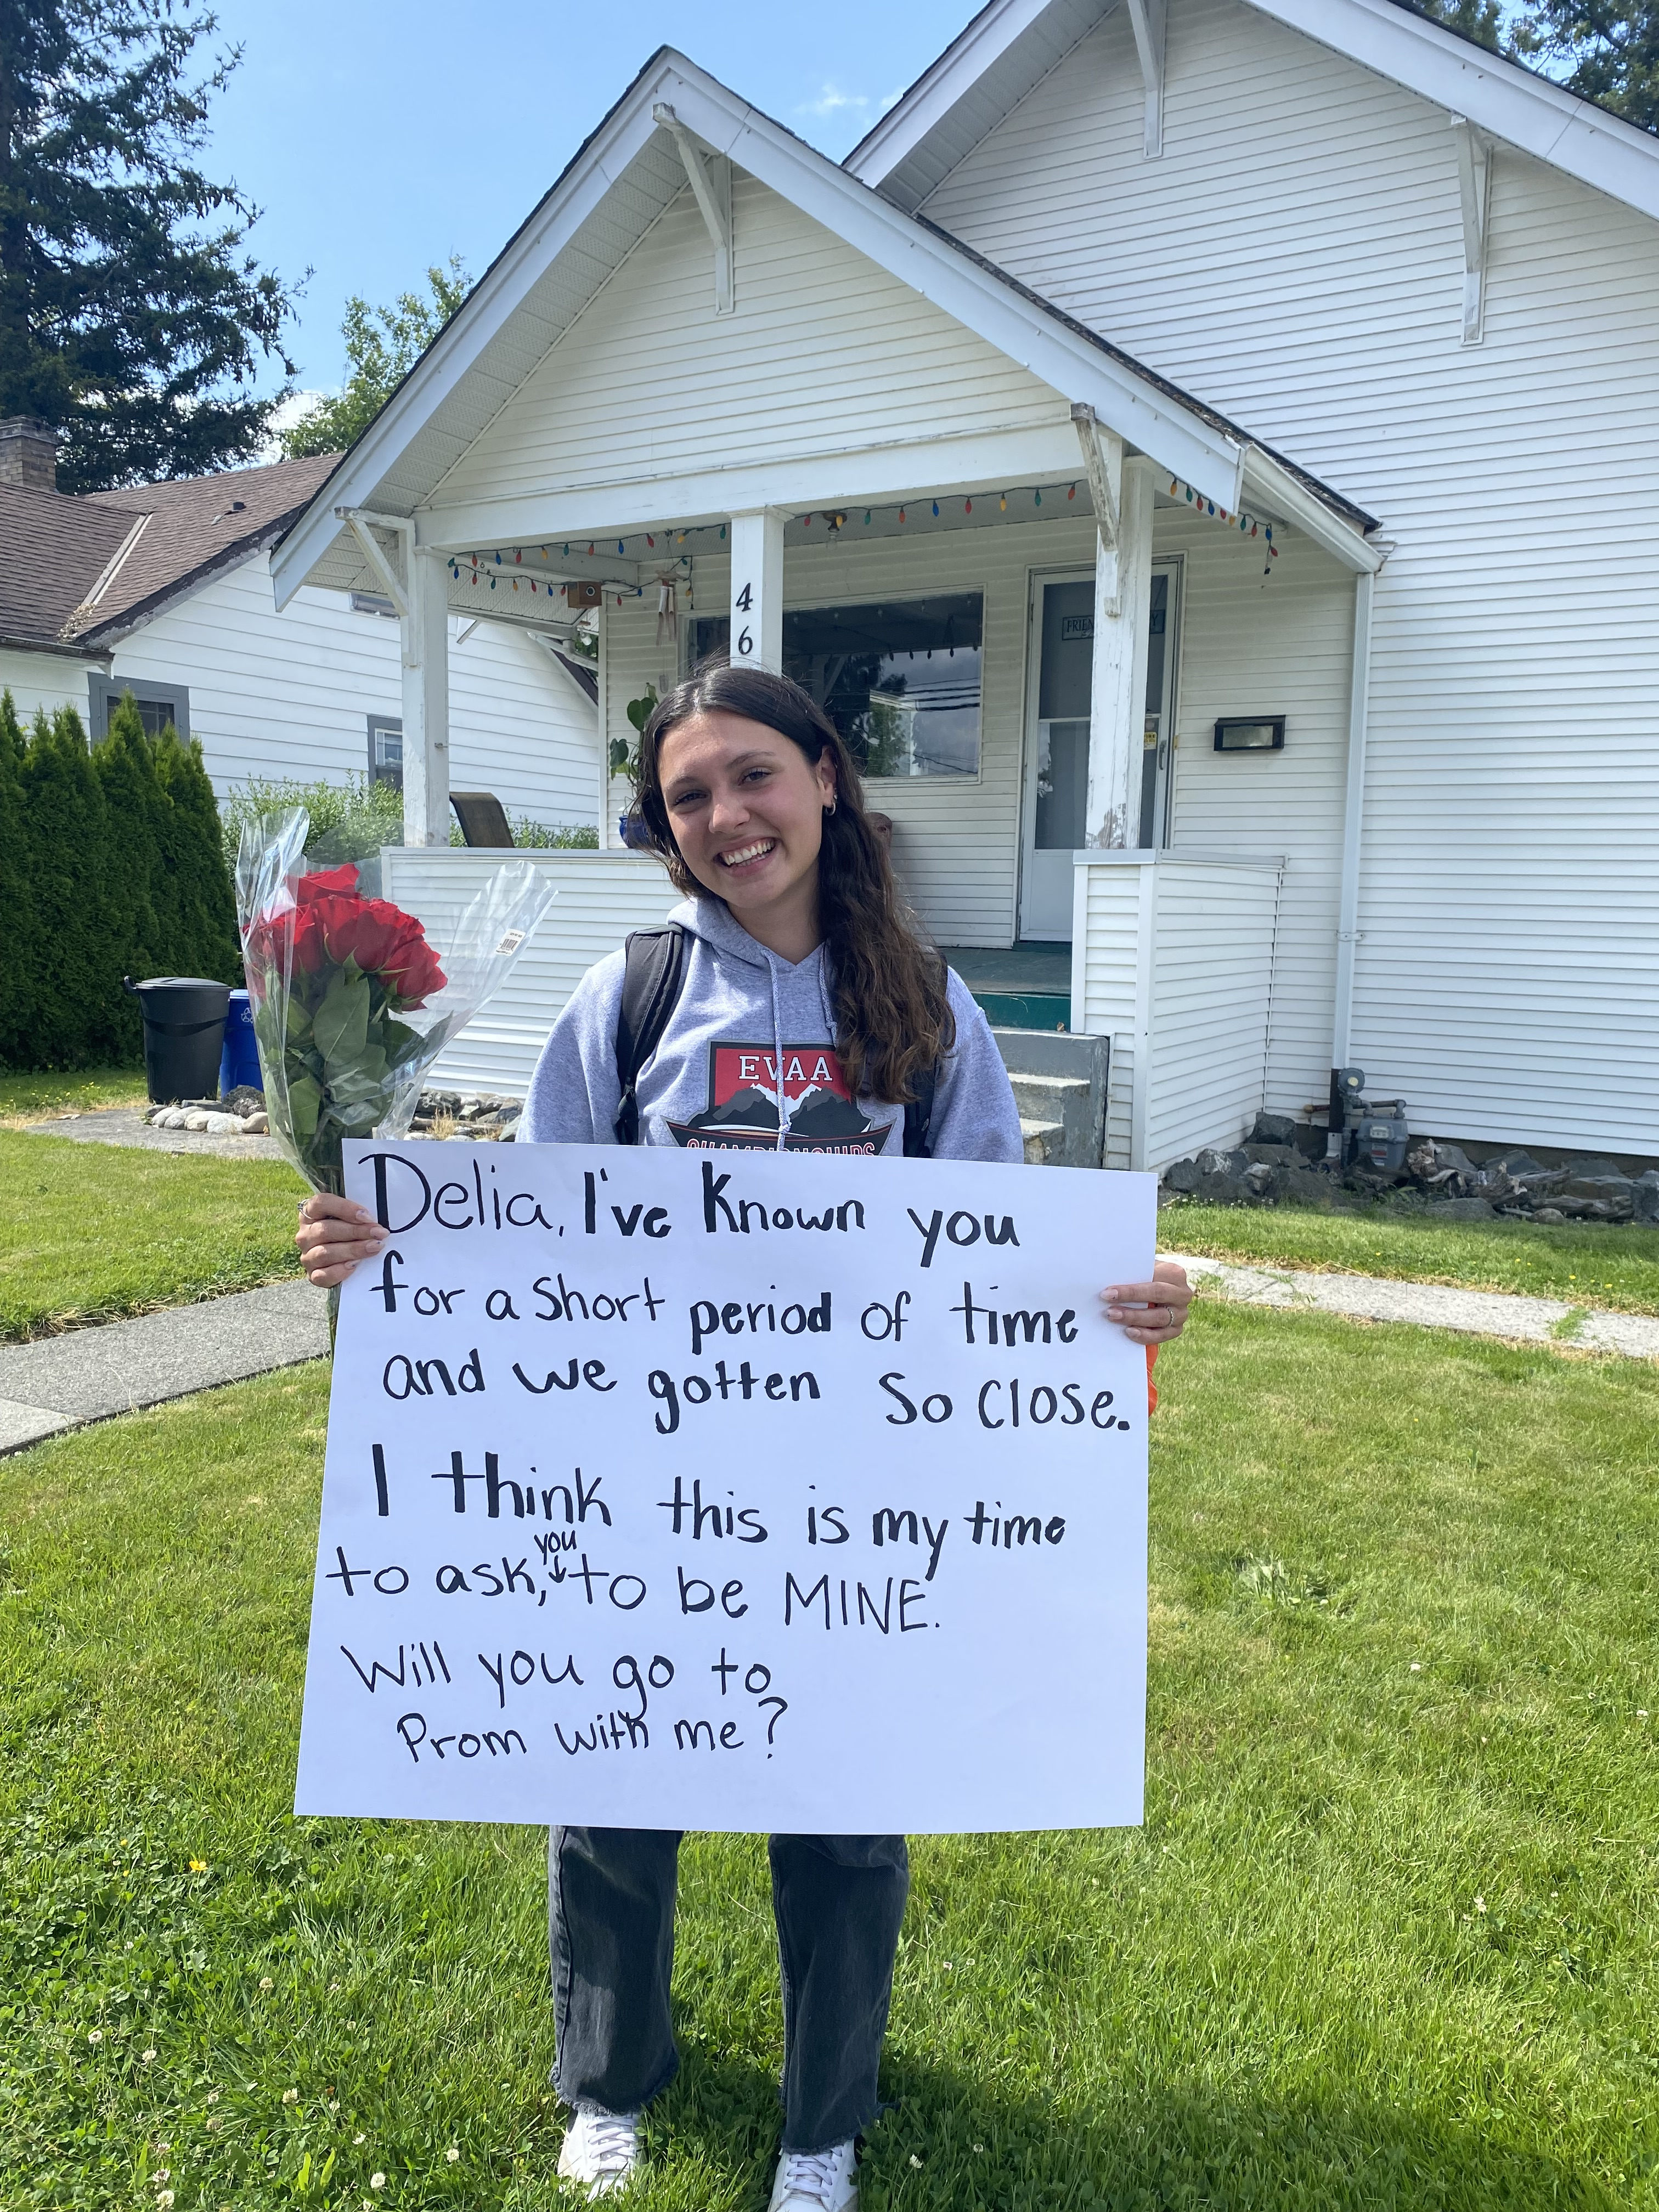 4
6
FRIEN
EVAA
CHAMPIONSHIPS
Delia, I've known you
for a short period of time
and we gotten so close.
I think this is my time
you
to ask, to be MINE.
Will you go to
Prom with me?